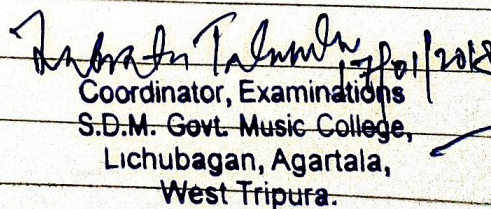 17/01/2018
Coordinator, Examinations
S.D.M. Govt. Music College,
Lichubagan, Agartala,
West Tripura.